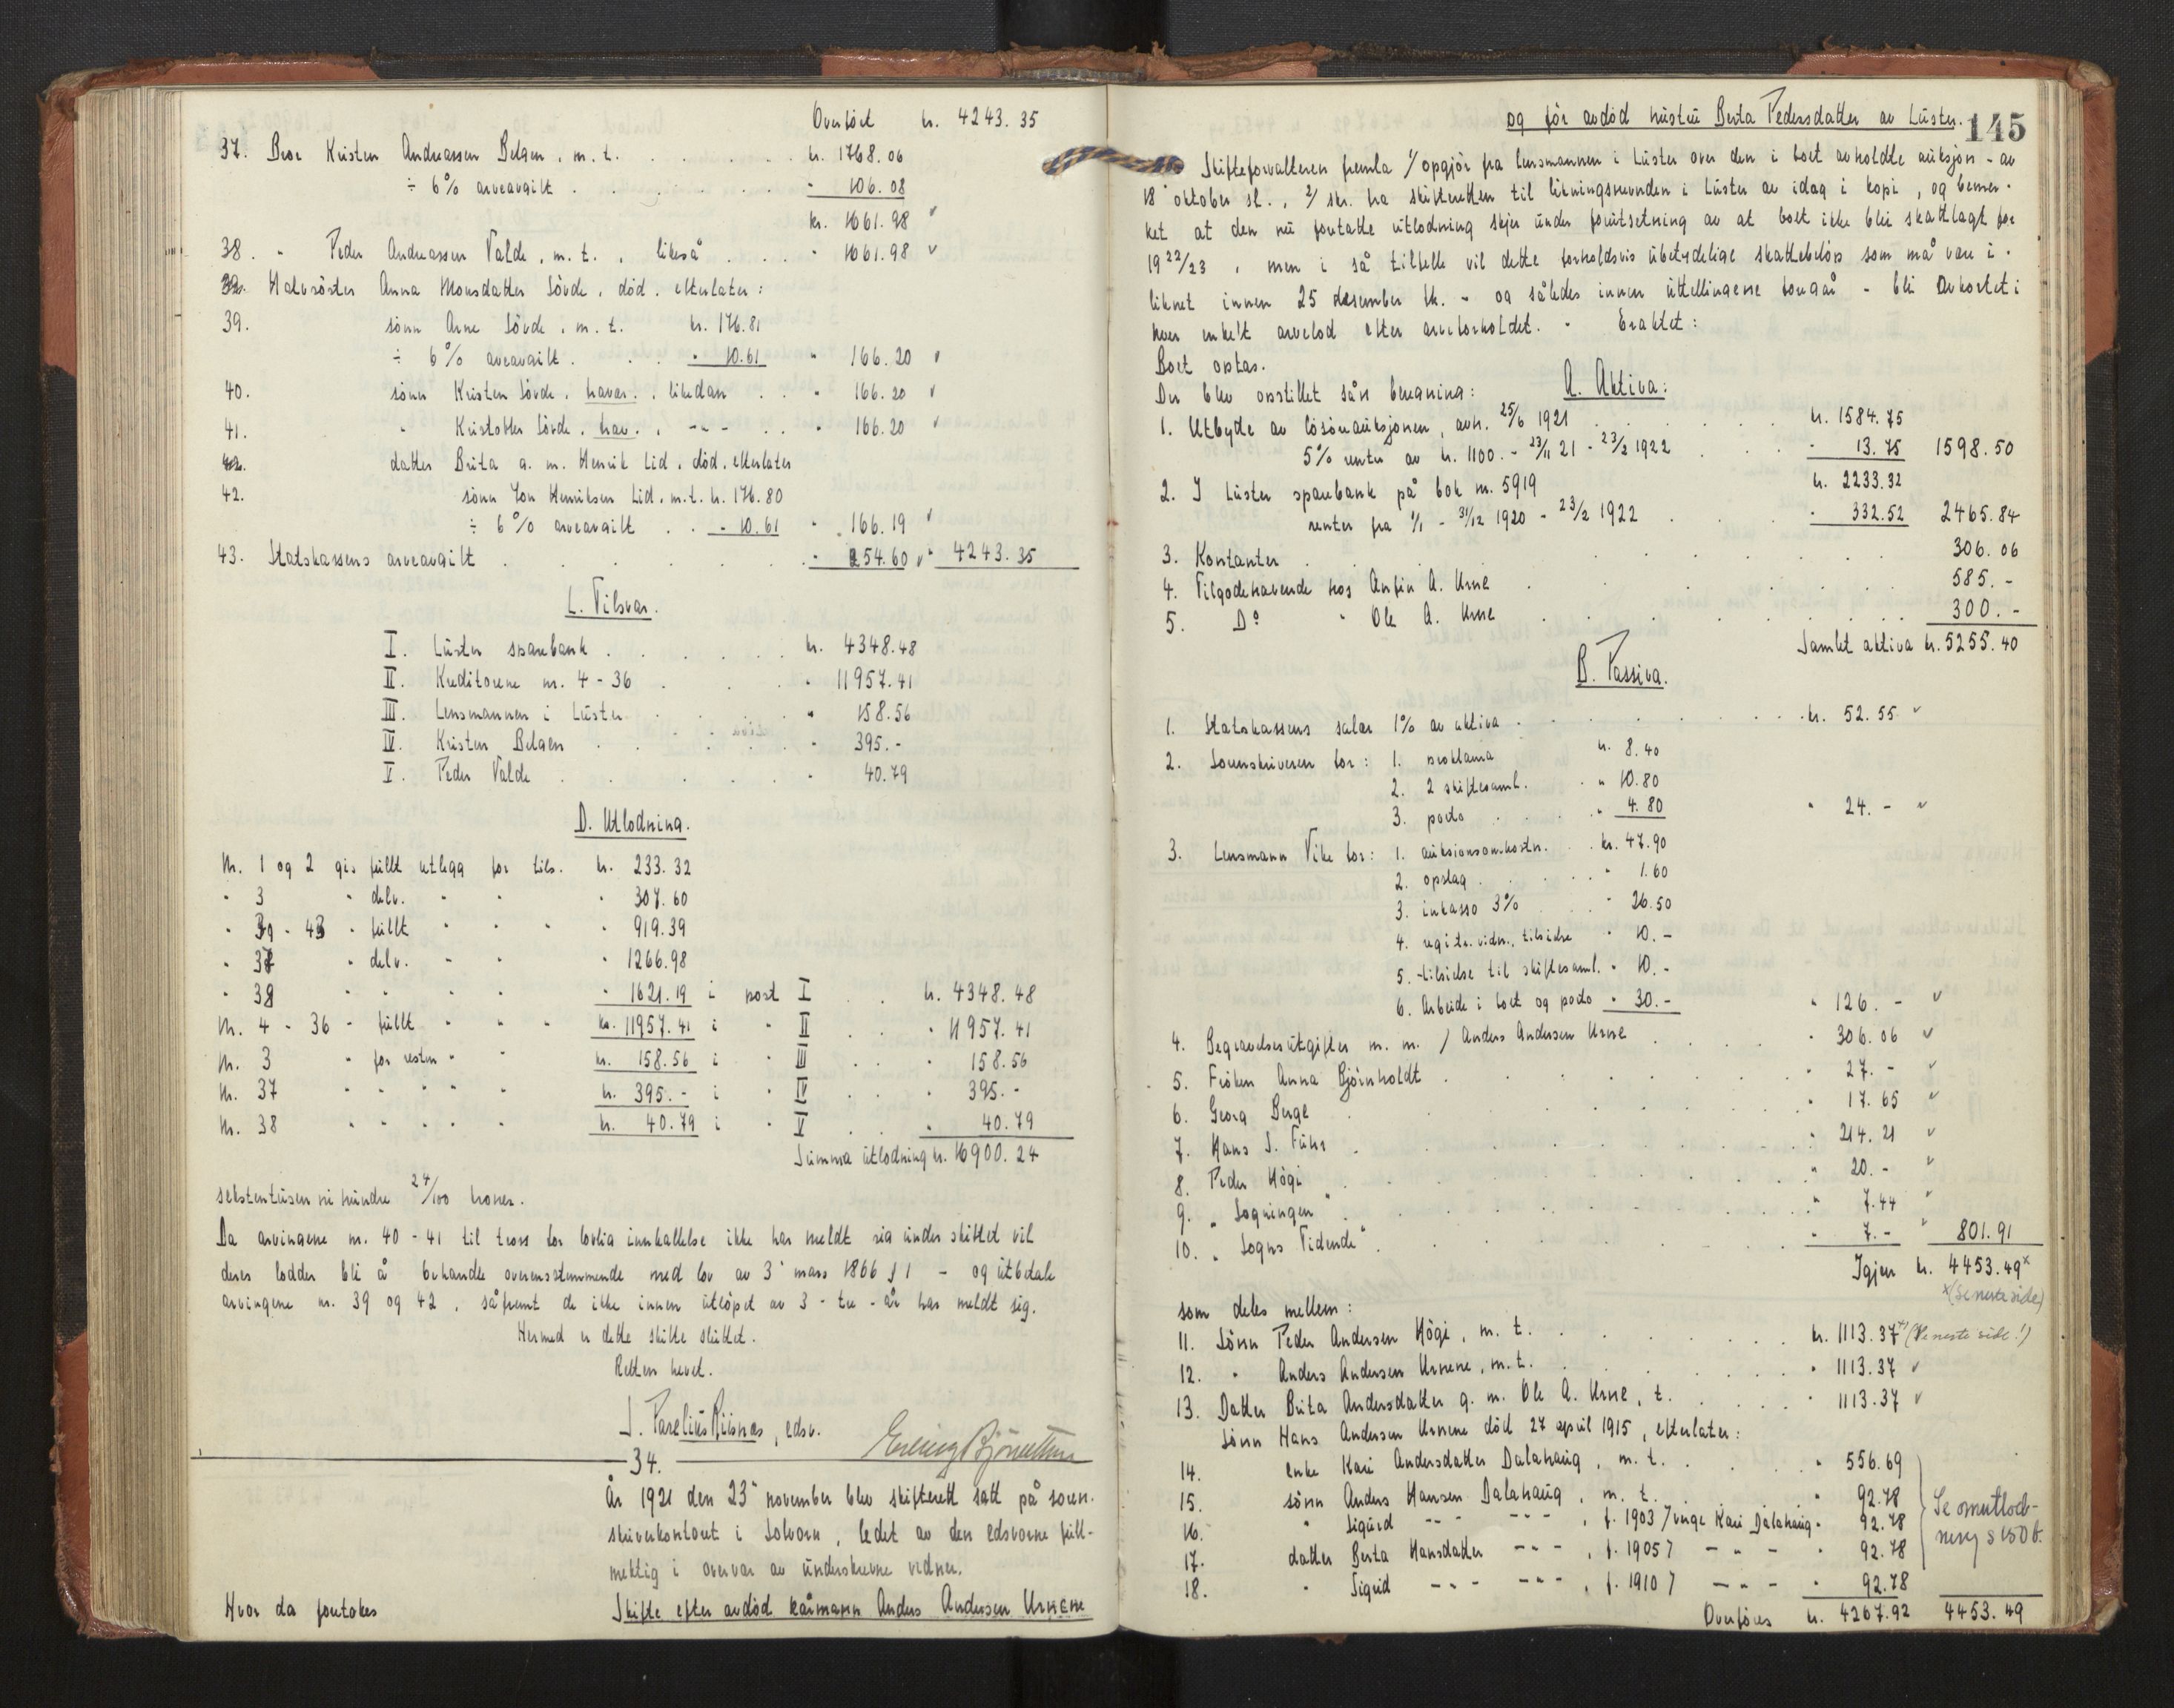 Overført kr. 4243.35
37. Bror Kristen Andreassen Bolgen, m. t. . . . . kr. 1768.06
÷ 6% arveavgift . . . . " 106.08
kr. 1661.98 ✓
38. " Peder Andreassen Valde, m. t., likeså . . . " 1661.98 ✓
Halvsöster Anna Monsdatter Sövde, död, efterlater:
39. sönn Arne Sövde, m. t. kr. 176.81
÷ 6% arveavgift . . . " 10.61 " 166.20 ✓
40. sönn Kristen Sövde, havar., likedan . . " 166.20 ✓
41. " Kristoffer Sövde, hav., --- . . " 166.20 ✓
datter Brita g. m. Henrik Lid, död, efterlater
42. sönn Jon Henriksen Lid, m.t. kr. 176.80
÷ 6% arveavgift . . - 10.61 " 166.19 ✓
43. Statskassens arveavgift . . . . " 254.60 ✓ " 4243.35
C. Tilsvar.
I. Lüster sparebank . . . . kr. 4348.48
II. Kreditorene nr. 4 - 36 . . . " 11957.41
III. Lensmannen i Lüster . . . " 158.56
IV. Kristen Bolgen . . . . " 395.-
V. Peder Valde . . . . " 40.79
D. Utlodning.
Nr. 1 og 2 gis füllt utlegg for tils. kr. 233.32
" 3 " delv. " " " 307.60
" 39 - 43 " füllt " " " 919.39
" 37 " delv. " " " 1266.98
" 38 " " " " " 1621.19 i post I . . kr. 4348.48
Nr. 4 - 36 - füllt " " " kr. 11957.41 i " II . . " 11957.41
Nr. 3 " for resten " " kr. 158.56 i " III . . " 158.56
Nr. 37 " " " " kr. 395.- i " IV . . " 395.-
Nr. 38 " " " " kr. 40.79 i " V . . " 40.79
Sümma ütlodning kr. 16900.24
sekstentüsen ni hündre 24/100 kroner.
Da arvingene nr. 40 - 41 til tross for lovlig innkallelse ikke har meldt sig ünder skiftet vil
deres lodder bli å behandle overensstemmende med lov av 3' mars 1866 § 1 - og ütbetale
arvingene nr. 39 og 42, såfremt de ikke innen ütlöpet av 3 - tre - år har meldt sig.
Hermed er dette skifte slüttet.
Retten hevet.
J. Parelius Riisnæs, edsv.
34.
År 1921 den 23' november blev skifterett satt på soren-
skriverkontoret i Solvorn, ledet av den edsvorne füll-
mektig i overvær av ünderskrevne vidner.
Hvor da foretokes Skifte efter avdöd kårmann Anders Andersen Urnene
145
og for avdöd hüstrü Berta Pedersdatter av Lüster.
Skifteforvalteren fremla 1/ opgjör fra lensmannen i Lüster over den i boet avholdte aüksjon - av
18' oktober sl., 2/ skr. fra skifteretten til likningsnevnden i Lüster av idag i kopi, og bemer-
ket at den nü foretatte ütlodning skjer ünder forütsetning av at boet ikke blir skattlagt for
1922/23, men i så tilfelle vil dette forholdsvis übetydelige skattebelöp som må være i-
liknet innen 25 desember fk. - og således innen üttellingene foregår - bli avkortet i
hver enkelt arvelod efter arveforholdet. - Eraktet:
Boet optas.
Der blev opstillet sån beregning: A. Aktiva:
1. Utbyde av lösöreaüksjonen, avh. 25/6 1921 . . . kr. 1584.75
5% renter av kr. 1100.- 23/11 21 - 23/2 1922 . . . " 13.75 1598.50
2. I Lüster sparebank på bok nr. 5919 kr. 2233.32
renter fra 1/1 - 31/12 1920 - 23/2 1922 . . . " 332.52 2465.84
3. Kontanter . . . . 306.06
4. Tilgodehavende hos Anfin A. Urne . . . . 585.-
5. Do " Ole A. Urne . . . . 300.-
Samlet aktiva kr. 5255.40
B. Passiva.
1. Statskassens salær 1% av aktiva . . . . kr. 52.55 ✓
2. Sorenskriveren for: 1. proklama kr. 8.40
2. 2 skiftesaml. . " 10.80
3. porto . . . " 4.80 " 24.- ✓
3. Lensmann Vike for: 1. aüksionsomkostn. . kr. 47.90
2. opslag . . . " 1.60
3. inkasso 3% " 26.50
4. registr. vidn., tilsidse " 10.-
5. tilsidse til skiftesaml. " 10.-
6. Arbeide i boet og porto " 30.- " 126.- ✓
4. Begravelsesütgifter m. m. / Anders Andersen Urne . . . " 306.06 ✓
5. Fröken Anna Bjørnholdt . . . . " 27.- ✓
6. Georg Berge . . . . " 17.65 ✓
7. Hans J. Führ . . . . " 214.21 ✓
8. Peder Högi . . . . " 20.- ✓
9. "Sogningen" . . . . " 7.44 ✓
10. "Sogns Tidende" . . . . " 7.- ✓ 801.91
Igjen kr. 4453.49 x
x(Se neste side)
som deles mellem:
11. Sönn Peder Andersen Högi, m. t. . . . kr. 1113.37 x) (Se neste side!)
12. " Anders Andersen Urnene, m.t. . . . " 1113.37 ✓
13. Datter Brita Andersdatter g. m. Ole A. Urne, t. . . . " 1113.37 ✓
Sönn Hans Andersen Urnene död 27 april 1915, efterlater:
14. enke Kari Andersdatter Dalahaüg, m. t. . . . " 556.69
15. sönn Anders Hansen Dalahaüg, m. t. . . " 92.78
16. " Sigürd --- ---, f. 1903 / verge Kari Dalahaüg " 92.78
17. datter Berta Hansdatter ---, f. 1905 / - - - " 92.78
18. " Sigrid --- ---, f. 1910 / - - - " 92.78
Se omutlod-
ning s 150 b.
Overföres kr. 4267.92 4453.49